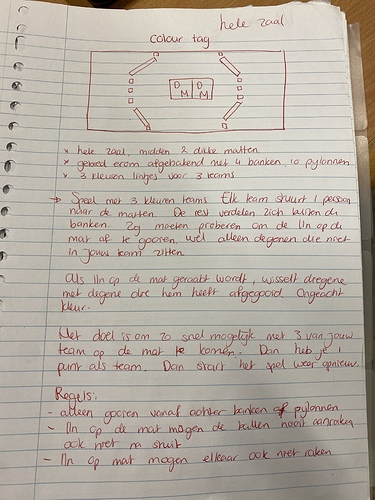 hele zaal
Colour tag
D D
M M
x hele zaal, midden 2 dikke matten
x gebied erom afgebakend met 4 banken, 10 pylonnen
x 3 kleuren lintjes voor 3 teams
→ Speel met 3 kleuren teams. Elk team stuurt 1 persoon
naar de matten. De rest verdelen zich buiten de
banken. Zij moeten proberen om de lln op de
mat af te gooien, wel alleen degenen die niet
in jouw team zitten.
Als lln op de mat geraakt wordt, wisselt diegene
met degene die hem heeft afgegooid. Ongeacht
kleur.
Het doel is om zo snel mogelijk met 3 van jouw
team op de mat te komen. Dan heb je 1
punt als team. Dan start het spel weer opnieuw.
Regels:
- alleen gooien vanaf achter banken of pylonnen
- lln op de mat mogen de ballen nooit aanraken
ook niet na stuit
- lln op mat mogen elkaar ook niet raken